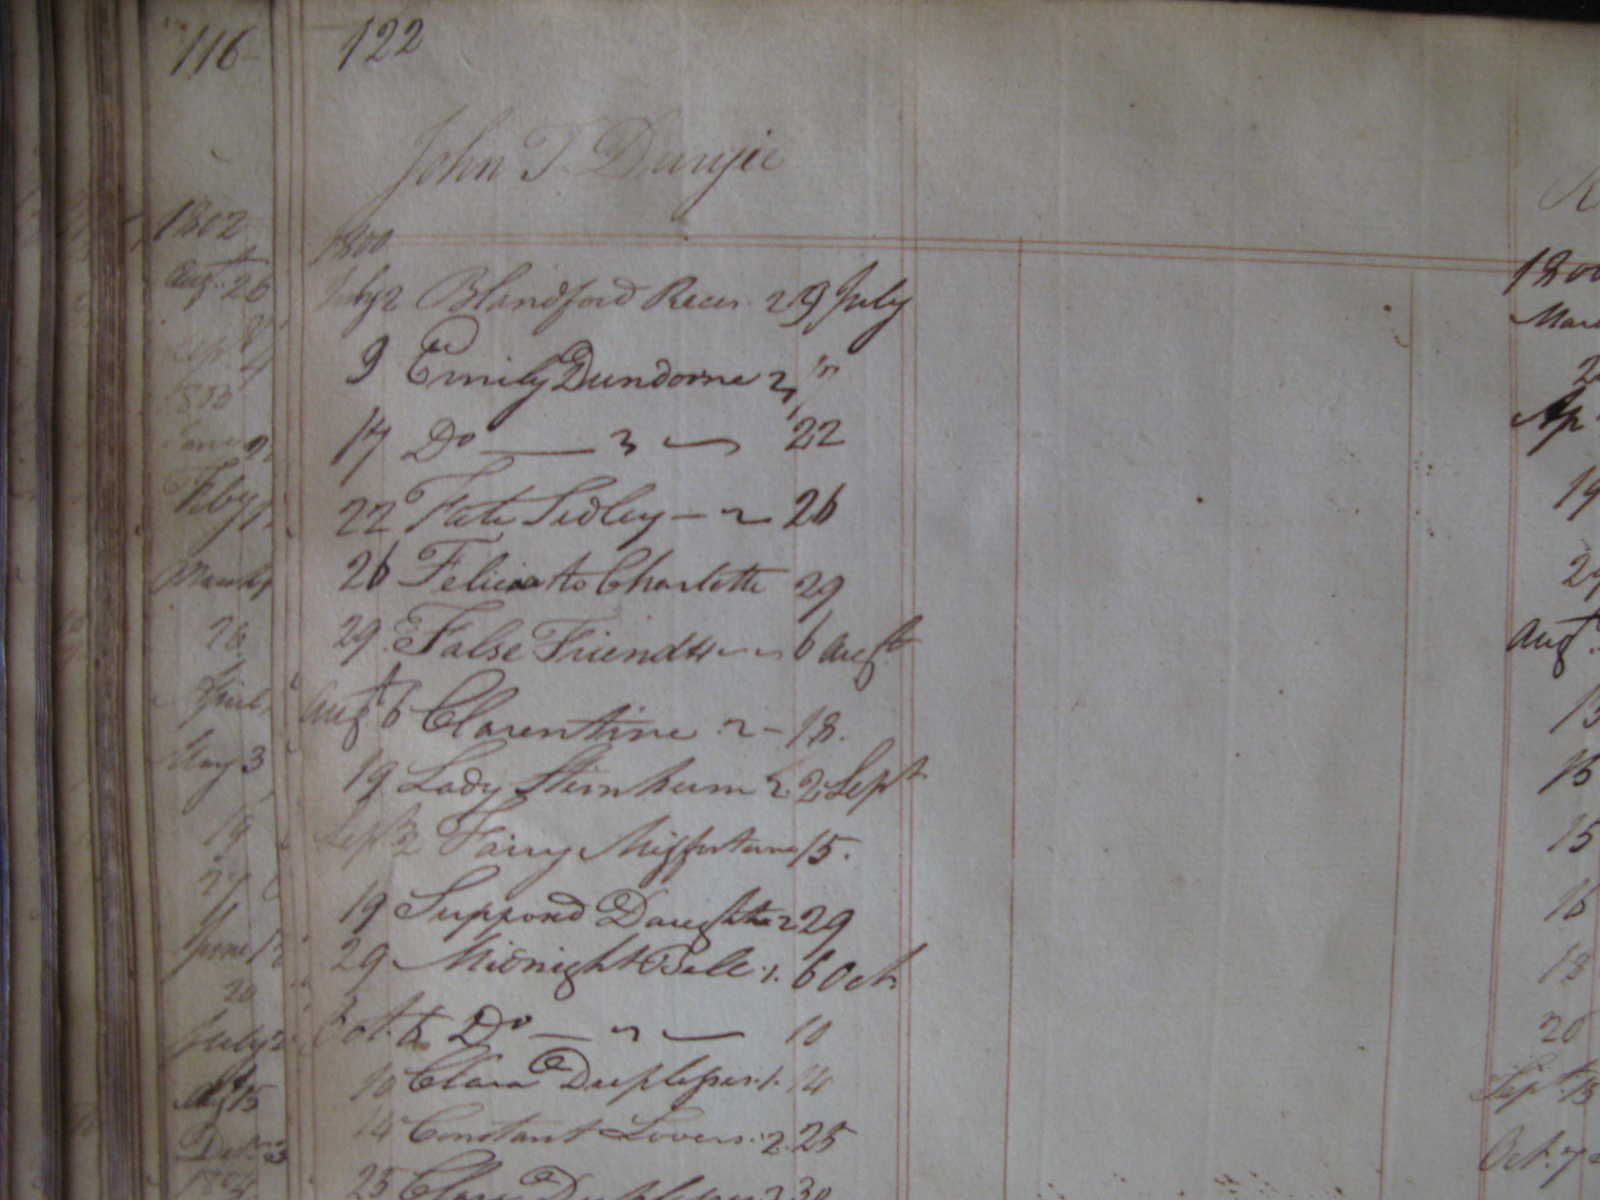 116
122
John T Duryie
1802
1800
Augt 26
July 2 Blandford Races. 2 19 July
9 Emily Dundorne 2 "
17 Do — 3 — 22
22 Fate Sidley — 2 26
26 Felicia to Charlotte 29
29 False Friends 6 Augt
Augt 6 Clarentine 2 - 18.
19 Lady 2. 2 Sept
Sept 2 Fairy Misfortune 15.
19 Supposd Daughter 2 29
29 Midnight Bell .1. 6 Oct.
Oct. 6 Do — " — 10
10 Clara Duplesses .1. 14
14 Constant Lovers .2. 25
25 Clara Duplesses 2 30
1803
Feby
March
26
April
May 3
19
27
June
20
July 2
15
Dec.
1804
1800
Mar
Ap
19
Augt
13
15
15
16
18
20
Sept 15
Oct. 7